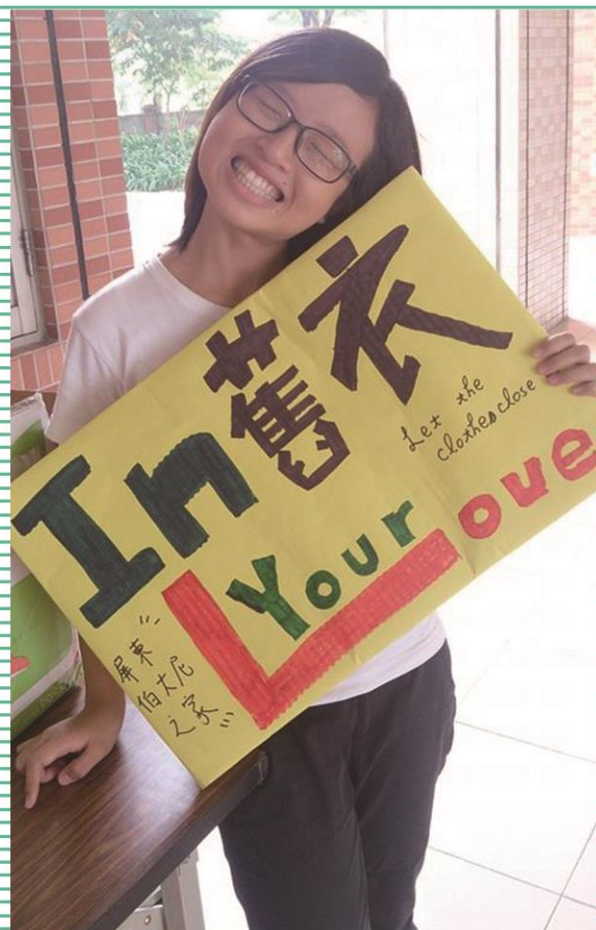 In舊衣
Let the
clothes close
Your Love
屏東
伯大尼
之家